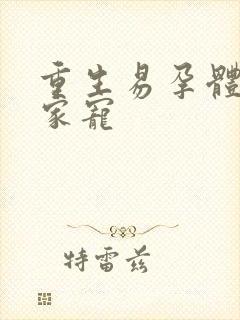 重生易孕體
家寵
特雷茲